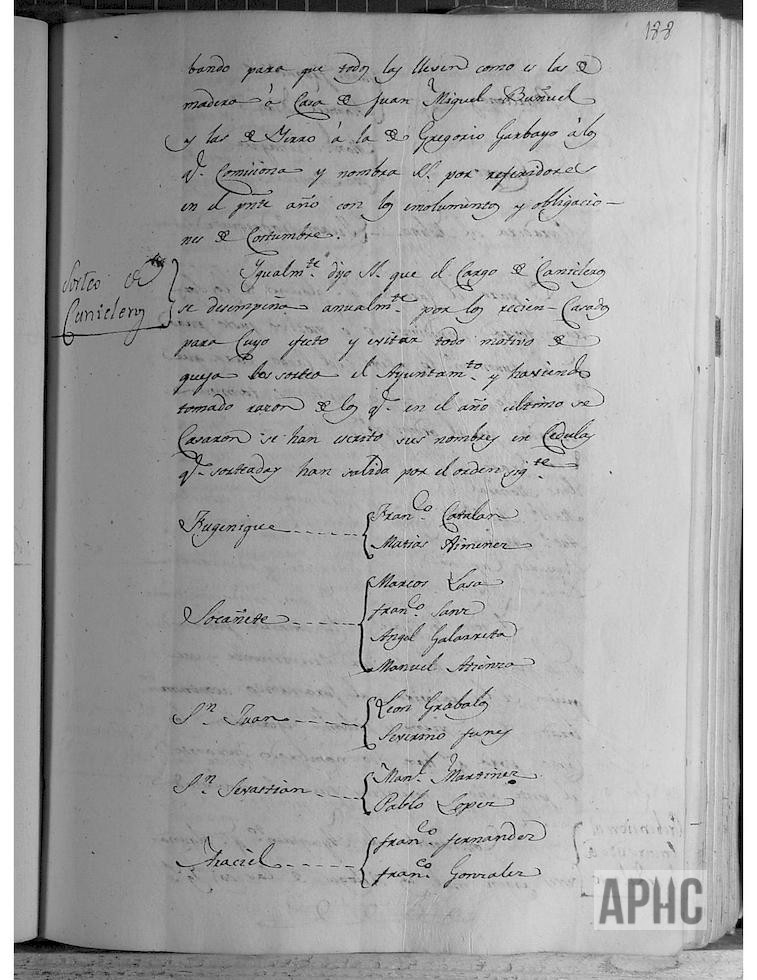 188
bando para que todos las lleven como es las de
madera à Casa de Juan Miguel Buñuel
y las de Yerro à la de Gregorio Garbayo à los
q.ˢ Comisiona y nombra S. por referidores
en el pnte año con los emolumentos y obligacio-
nes de Costumbre.
Sorteo de
Cunicleros
Ygualm.te dijo S. que el Cargo de Cunicleros
se desempeña anualm.te por los recien-Casados
para Cuyo efecto y evitar todo motivo de
queja los sortea el Ayuntam.to y haviendo
tomado razon de los q.e en el año ultimo se
Casaron se han escrito sus nombres en Cedulas
q.e sorteadas han salido por el orden sig.te
Fran.co Catalan
Matias Ximenez
Marcos Lasa
fran.co Sanz
Angel Galarreta
Manuel Atienza
S.n Juan
Leon Grabalos
Severino funes
S.n Sevastian
Man.l Martinez
Pablo Lopez
Araciel
fran.co fernandez
fran.co Gonzalez
APHC